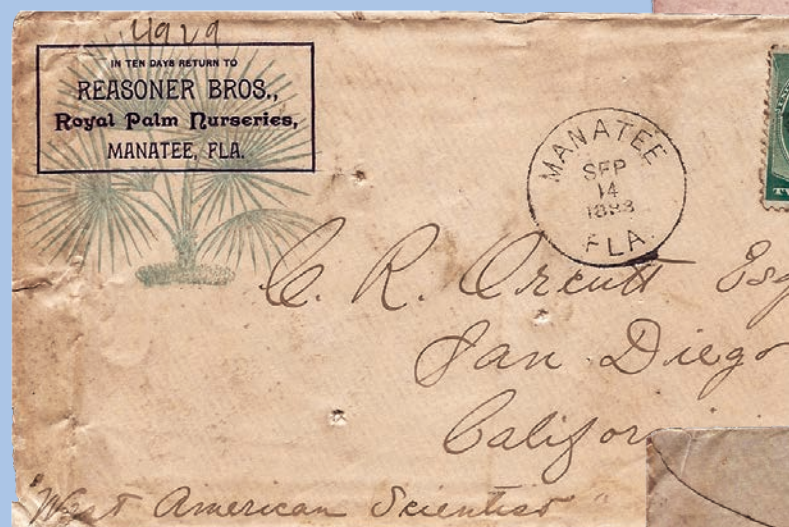 4929
IN TEN DAYS RETURN TO
REASONER BROS.,
Royal Palm Nurseries,
MANATEE, FLA.
MANATEE
SEP
14
1888
FLA.
C. R. Orcutt Esq
San Diego
Califor
"West American Scientist"